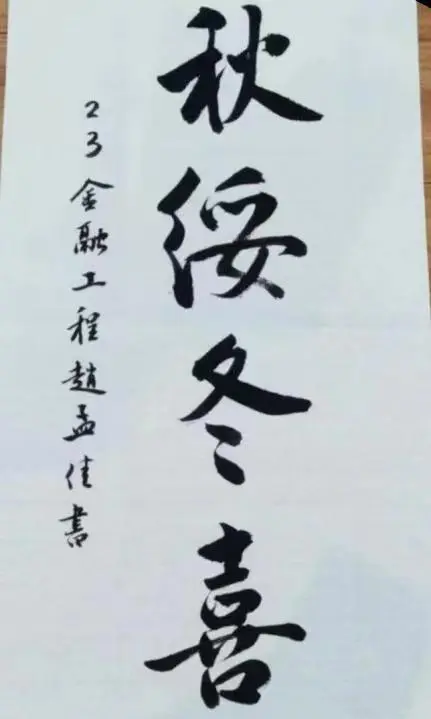 秋绥冬喜
23金融工程趙孟佳書